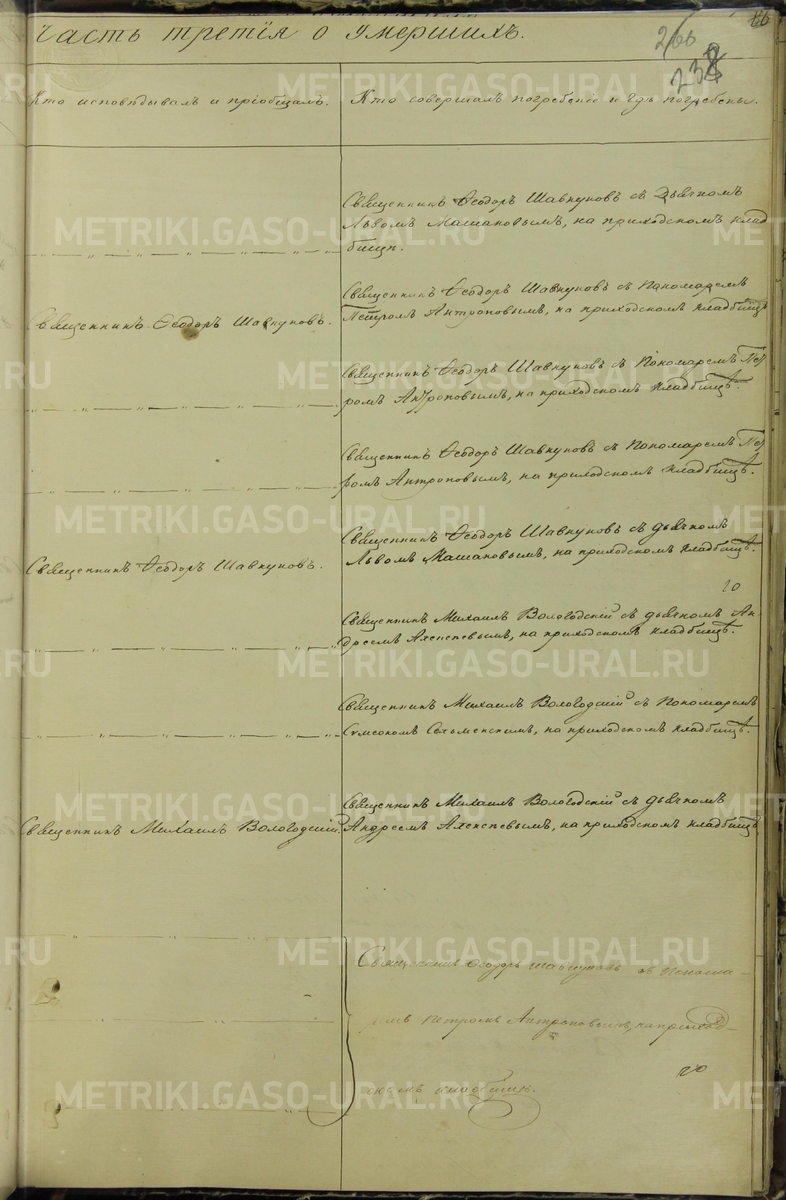 86
часть третія о умершихъ.
266
238
Кто исповѣдывалъ и пріобщалъ.
Кто совершалъ погребеніе и гдѣ погребены.
Священникъ Ѳеодоръ Шавкуновъ съ Дьячкомъ
Львомъ Машановымъ, на приходскомъ клад
бищѣ.
Священникъ Ѳеодоръ Шавкуновъ.
Священникъ Ѳеодоръ Шавкуновъ съ Пономаремъ
Петромъ Антроповымъ, на приходскомъ кладбищѣ
Священникъ Ѳеодоръ Шавкуновъ съ Пономаремъ Пет
ромъ Антроповымъ, на приходскомъ кладбищѣ.
Священникъ Ѳеодоръ Шавкуновъ съ Пономаремъ Пет
ромъ Антроповымъ, на приходскомъ кладбищѣ.
Священникъ Ѳеодоръ Шавкуновъ.
Священникъ Ѳеодоръ Шавкуновъ съ дьячкомъ
Львомъ Машановымъ, на приходскомъ кладбищѣ.
Священникъ Михаилъ Вологодскій съ дьячкомъ Ан-
дреемъ Алексѣевымъ, на приходскомъ кладбищѣ.
Священникъ Михаилъ Вологодскій съ Пономаремъ
Сельменскимъ, на приходскомъ кладбищѣ.
Священникъ Михаилъ Вологодскій.
Священникъ Михаилъ Вологодскій съ дьячкомъ
Андреемъ Алексѣевымъ, на приходскомъ кладбищѣ
Священникъ Ѳеодоръ Шавкуновъ съ Понома-
ремъ Петромъ Антроповымъ, на приход-
скомъ кладбищѣ.
METRIKI.GASO-URAL.RU